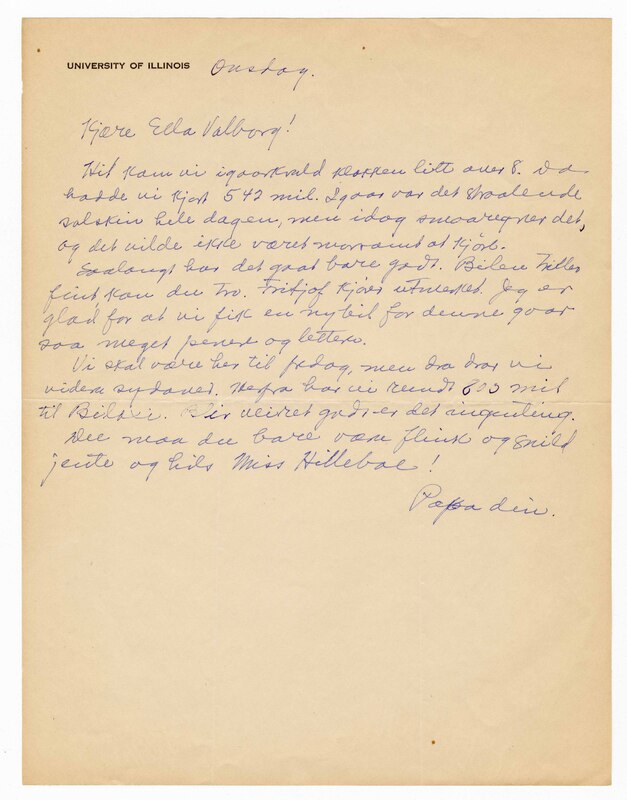 UNIVERSITY OF ILLINOIS Onsdag.
Kjære Ella Valborg!
Hit kom vi igaarkveld klokken litt over 8. Da
hadde vi kjørt 542 mil. Igaar var det straalende
solskin hele dagen, men idag smaaregner det,
og det vilde ikke været morsomt at kjøre.
Saalangt har det gaat bare godt. Bilen triller
fint, kan du tro. Fritjof kjører utmerket. Jeg er
glad for at vi fik en ny bil for denne gaar
saa meget penere og lettere.
Vi skal være her til fredag, men da drar vi
videre sydover. Herfra har vi rundt 800 mil
til Biloxi. Blir veiret godt er det ingenting.
Nu maa du bare være flink og snild
jente og hils Miss Hilleboe!
Papa din.